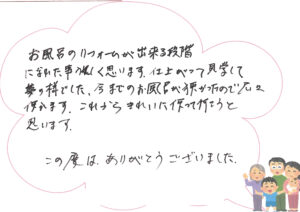 お風呂のリフォームが出来る段階
になれた事嬉しく思います。仕上がって見学して
夢の様でした。今までのお風呂が狭かったので広々
使えます。これからきれいに使って行こうと
思います。
この度は、ありがとうございました。